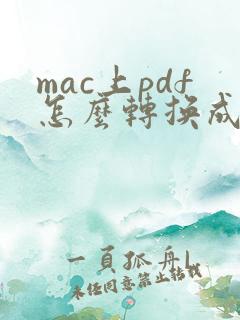 mac上pdf
怎麼轉換成
一頁孤舟
未经同意禁止转载